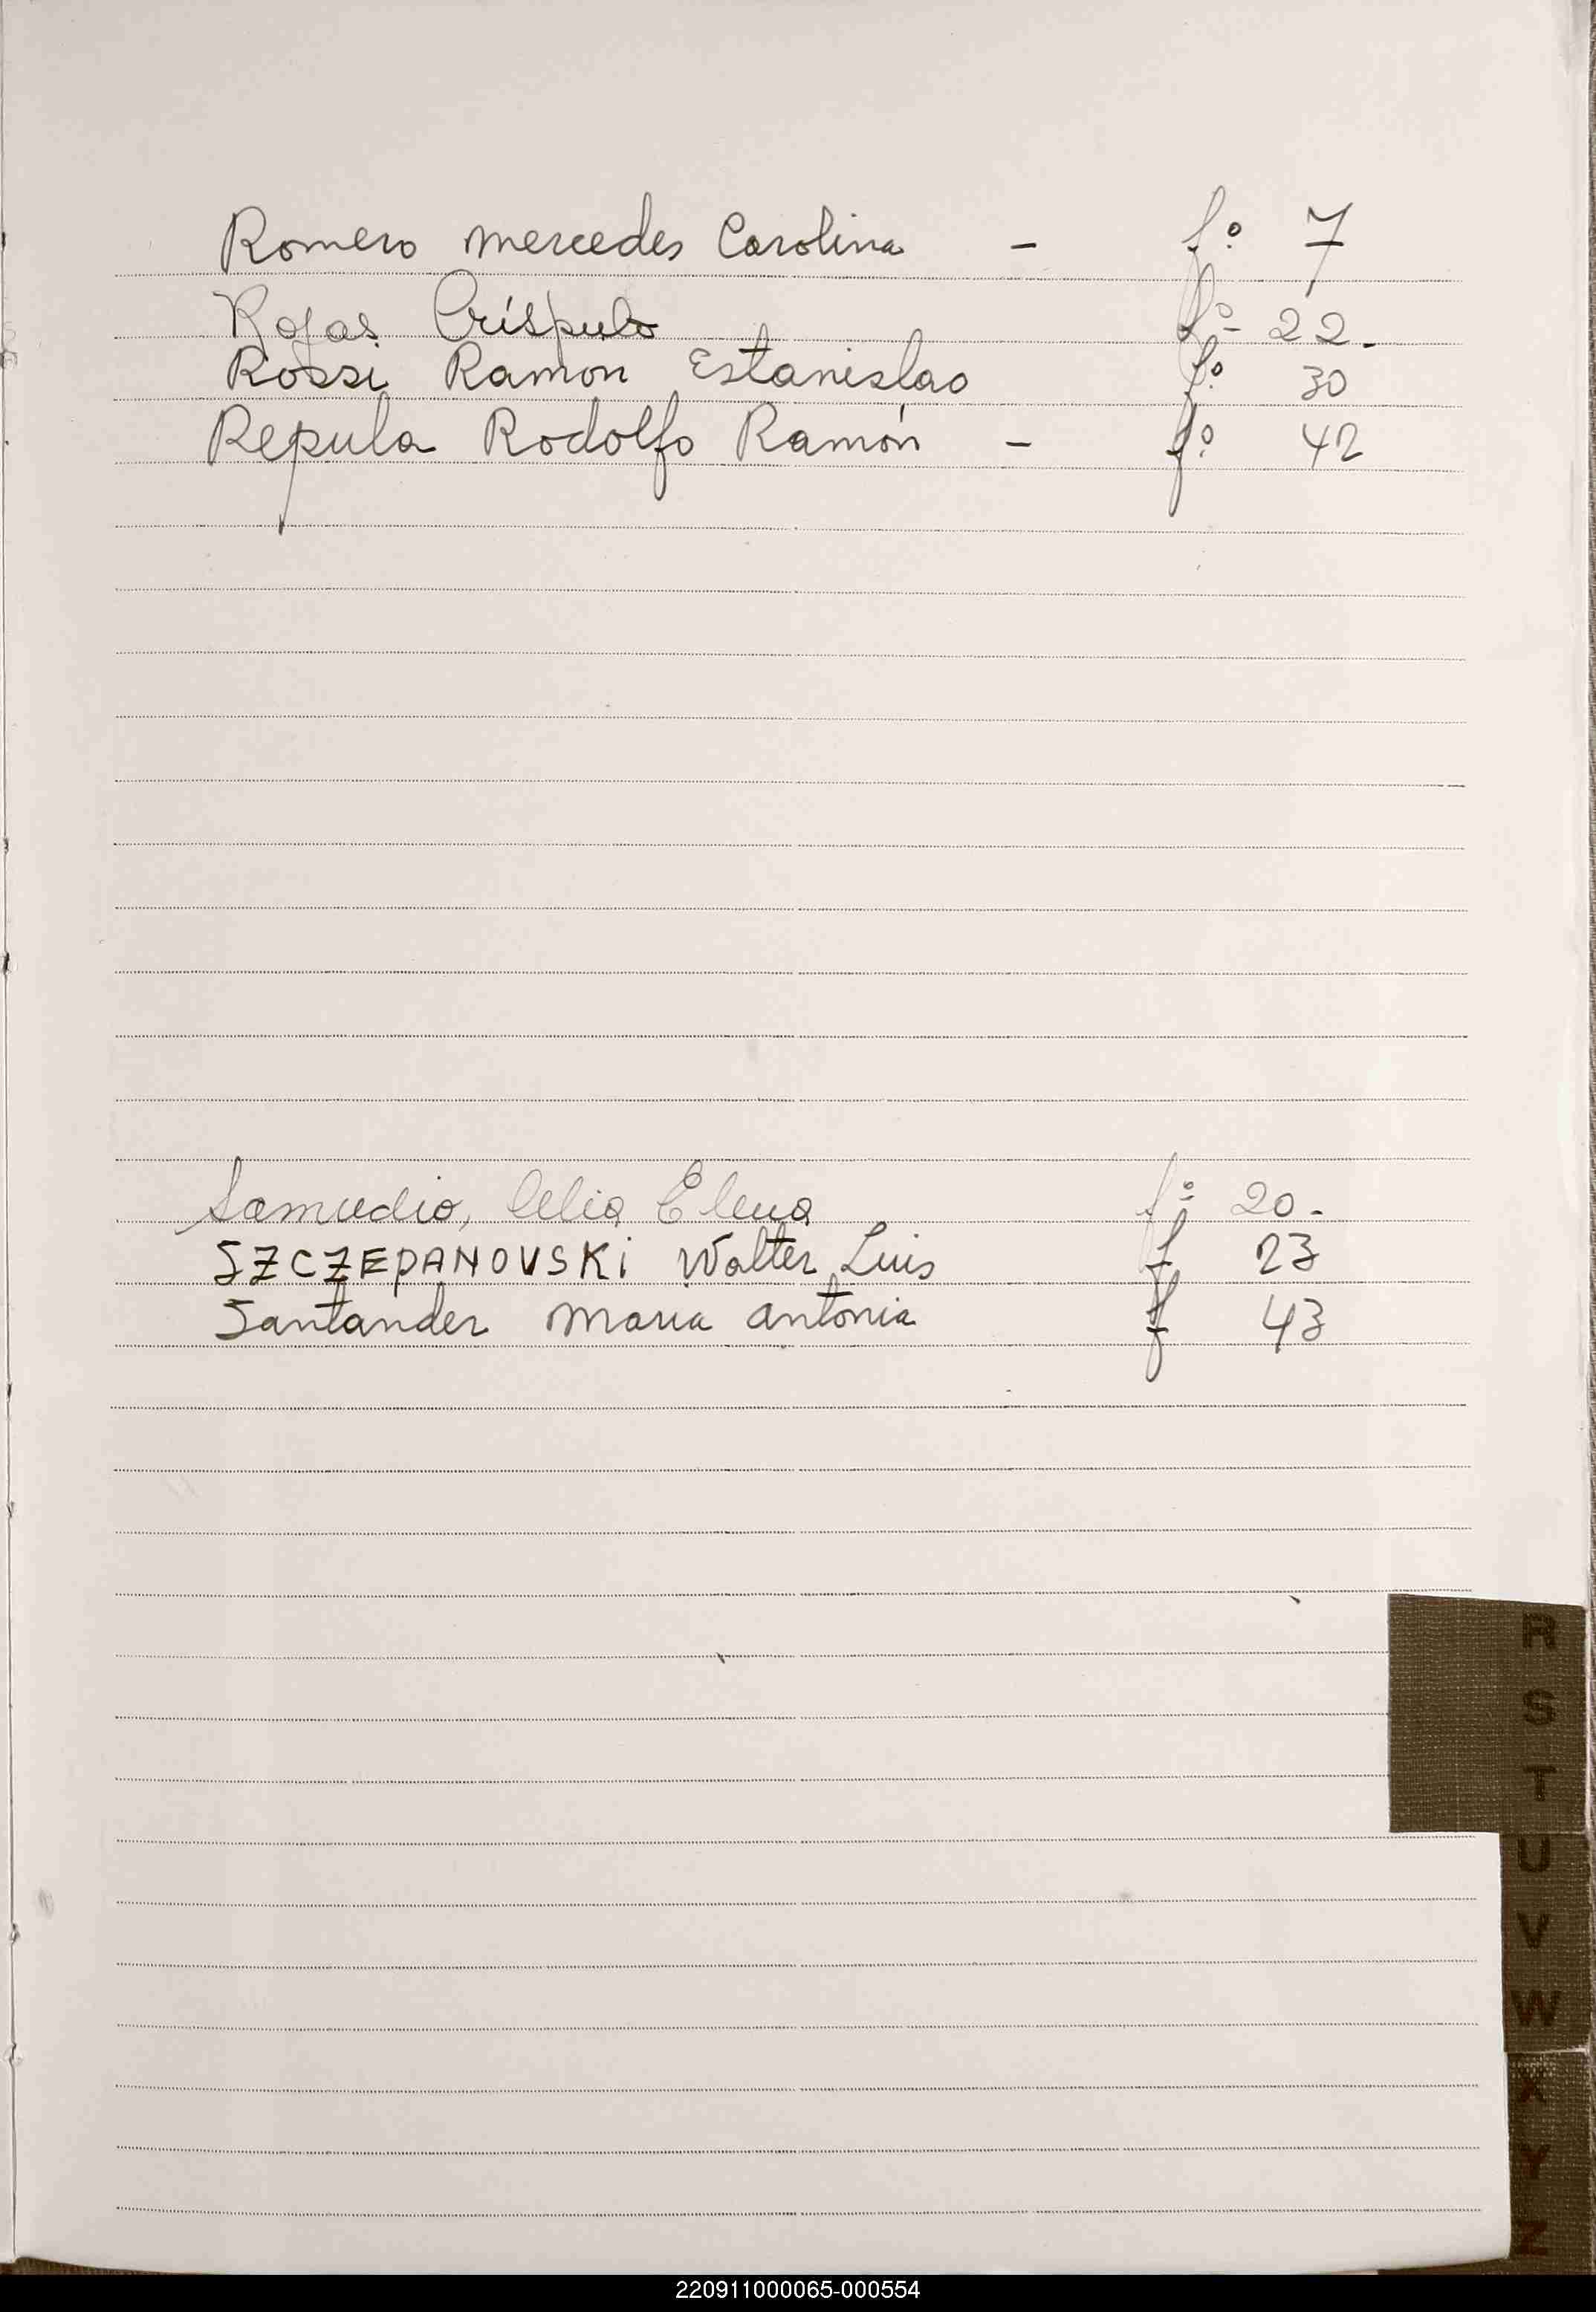 Romero Mercedes Carolina - fº 7
Rojas Críspulo fº- 22.-
Rossi Ramon Estanislao fº 30
Repula Rodolfo Ramón - fº 42
Samudio, Celia Elena fº 20.-
SZCZEPANOVSKi Walter Luis f 23
Santander Maria Antonia f 43
R
S
T
U
V
W
X
Y
Z
220911000065-000554